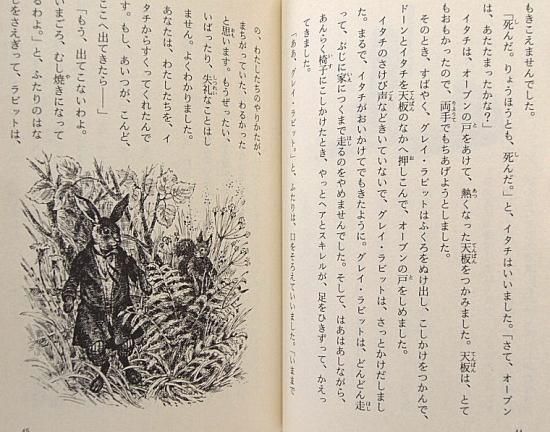 もきこえませんでした。
「死んだ。りょうほうとも、死んだ。」と、イタチはいいました。「さて、オーブン
は、あたたまったかな？」
イタチは、オーブンの戸をあけて、熱くなった天板をつかみました。天板は、とて
もおもかったので、両手でもちあげようとしました。
そのとき、すばやく、グレイ・ラビットはふくろをぬけ出し、こしかけをつかんで、
ドーンとイタチを天板のなかへ押しこんで、オーブンの戸をしめました。
イタチのさけび声などきいていないで、グレイ・ラビットは、さっとかけだしまし
た。まるで、イタチがおいかけてでもきたように。グレイ・ラビットは、どんどん走
って、ぶじに家につくまで走るのをやめませんでした。そして、はあはあしながら、
あんらく椅子にこしかけたとき、やっとヘアとスキレルが、足をひきずって、かえっ
てきました。
「ああ、グレイ・ラビット。」と、ふたりは、口をそろえていいました。「いままで
の、わたしたちのやりかたが、
まちがっていた、わるかった
と思います。もうぜったい、
いばったり、失礼なことはし
ません。よくわかりました。
あなたは、わたしたちを、イ
タチからすくってくれたんで
す。もし、あいつが、こんど、
ここへ出てきたら――」
「もう、出てこないわよ。
いまごろ、むし焼きになって
るわよ。」と、ふたりのはな
しをさえぎって、ラビットは、
44
45